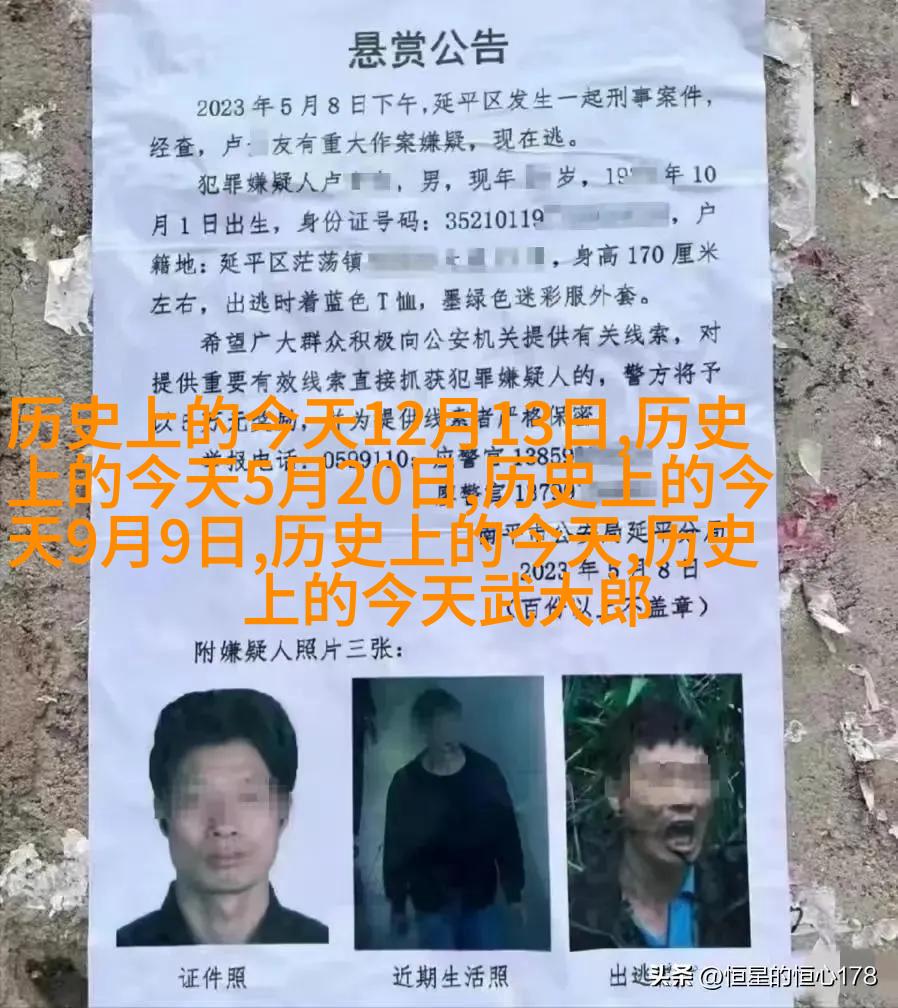 悬赏公告
2023年5月8日下午,延平区发生一起刑事案件,
经查,卢 友有重大作案嫌疑,现在逃。
犯罪嫌疑人卢 ,男,现年 岁,19 年10
月1日出生,身份证号码:35210119 ,户
籍地:延平区茫荡镇 ,身高170厘米
左右,出逃时着蓝色T恤,墨绿色迷彩服外套。
希望广大群众积极向公安机关提供有关线索,对
提供重要有效线索直接抓获犯罪嫌疑人的,警方将予
为提供线索者严格保密
举报电话:0599110; 警官13859
警官13799
南平市公安局延平分局
2023年5月8日
(百份以上不盖章)
历史上的今天12月13日,历史
上的今天5月20日,历史上的今
天9月9日,历史上的今天,历史
上的今天武大郎
附嫌疑人照片三张:
证件照
近期生活照
出逃
头条 @恒星的恒心178